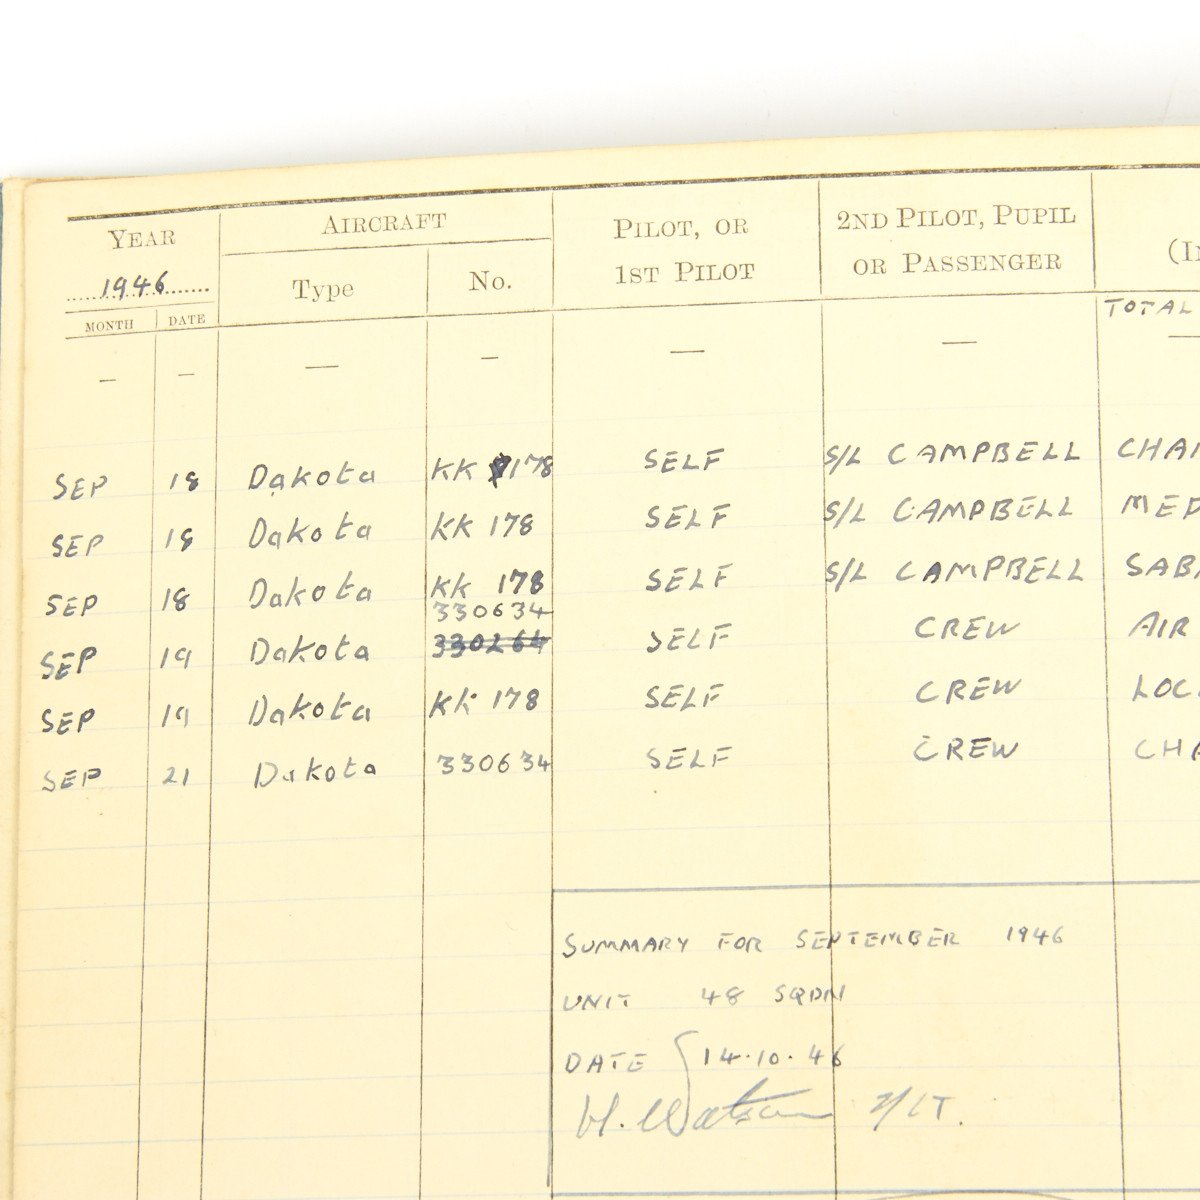 YEAR AIRCRAFT PILOT, OR 2ND PILOT, PUPIL
1946 Type No. 1ST PILOT OR PASSENGER (I
MONTH DATE TOTAL
— — — — — — —
SEP 18 Dakota KK 178 SELF S/L CAMPBELL CHA
SEP 18 Dakota KK 178 SELF S/L CAMPBELL MED
SEP 18 Dakota KK 178 SELF S/L CAMPBELL SAB
330634
SEP 19 Dakota 330264 SELF CREW AIR
SEP 19 Dakota KK 178 SELF CREW LOC
SEP 21 Dakota 330634 SELF CREW CHA
SUMMARY FOR SEPTEMBER 1946
UNIT 48 SQDN
DATE 14.10.46
H. Watson F/LT.